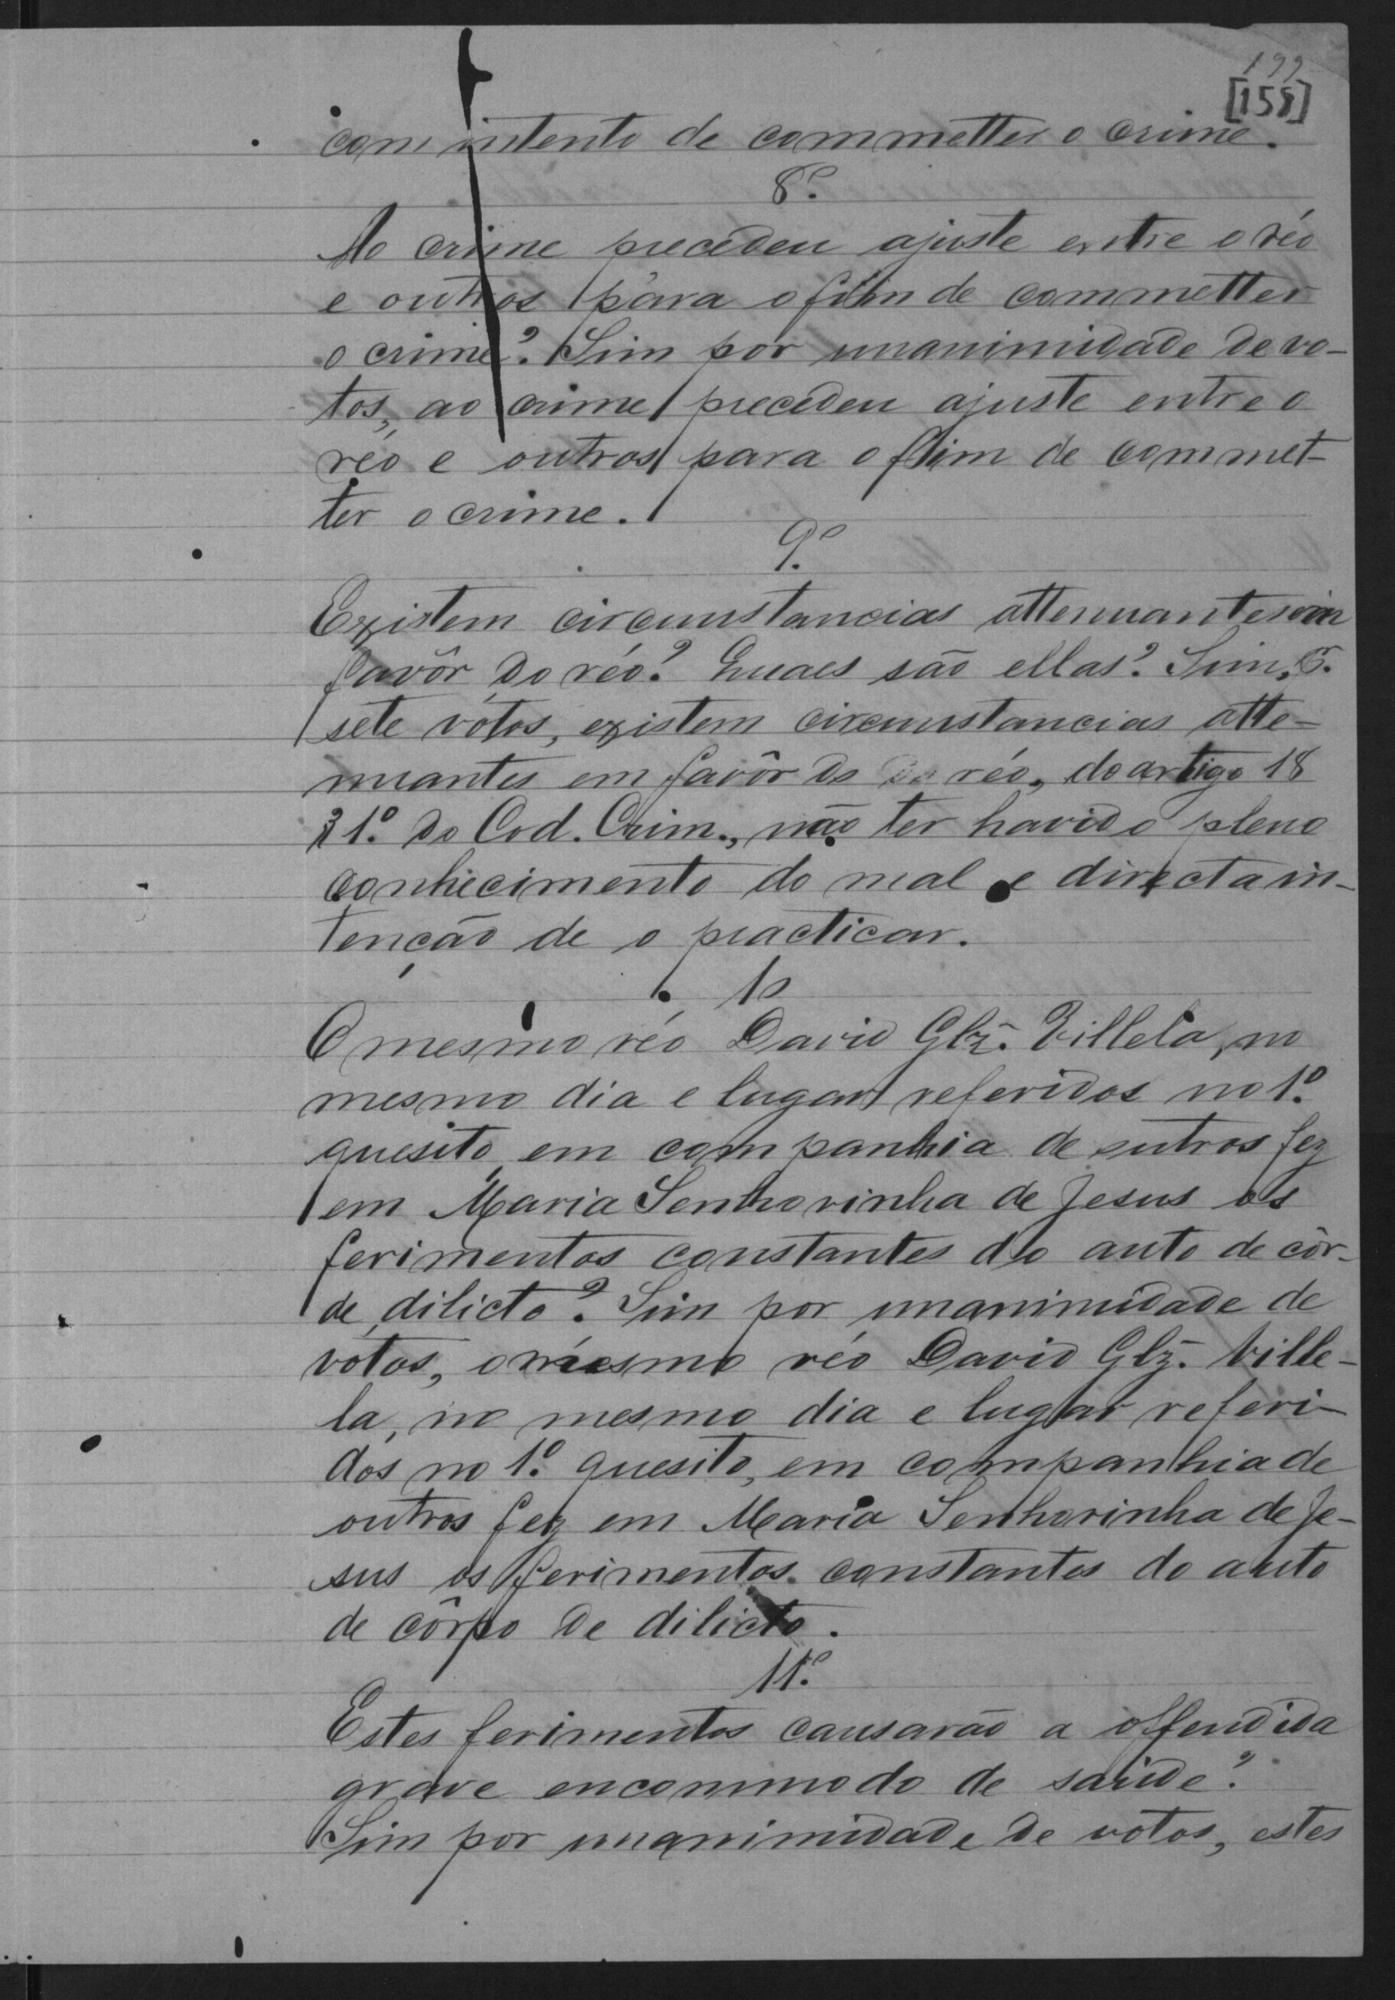 199
[158]
com intento de commetter o crime.
8º.
Ao crime precedeu ajuste entre o réo
e outros para o fim de commetter
o crime? Sim por unanimidade de vo-
tos, ao crime precedeu ajuste entre o
réo e outros para o fim de commet-
ter o crime.
9º.
Existem circunstancias attenuantes em
favôr do réo? Quaes são ellas? Sim,
sete vótos, existem circunstancias atte-
nuantes em favôr do réo, do artigo 18
§ 1º. do Cod. Crim., não ter havido pleno
conhecimento do mal e directa in-
tenção de o practicar.
10
O mesmo réo David Glz. Villela, no
mesmo dia e lugar referidos no 1º.
quesito em companhia de outros fez
em Maria Senhorinha de Jesus os
ferimentos constantes do auto de côr-
de dilicto? Sim por unanimidade de
vótos, o mesmo réo David Glz. Ville-
la, no mesmo dia e lugar referi-
dos no 1º. quesito, em companhia de
outros fez em Maria Senhorinha de Je-
sus os ferimentos constantes do auto
de côrpo de dilicto.
11º.
Estes ferimentos causarão a offendida
grave encommodo de saúde?
Sim por unanimidade de votos, estes